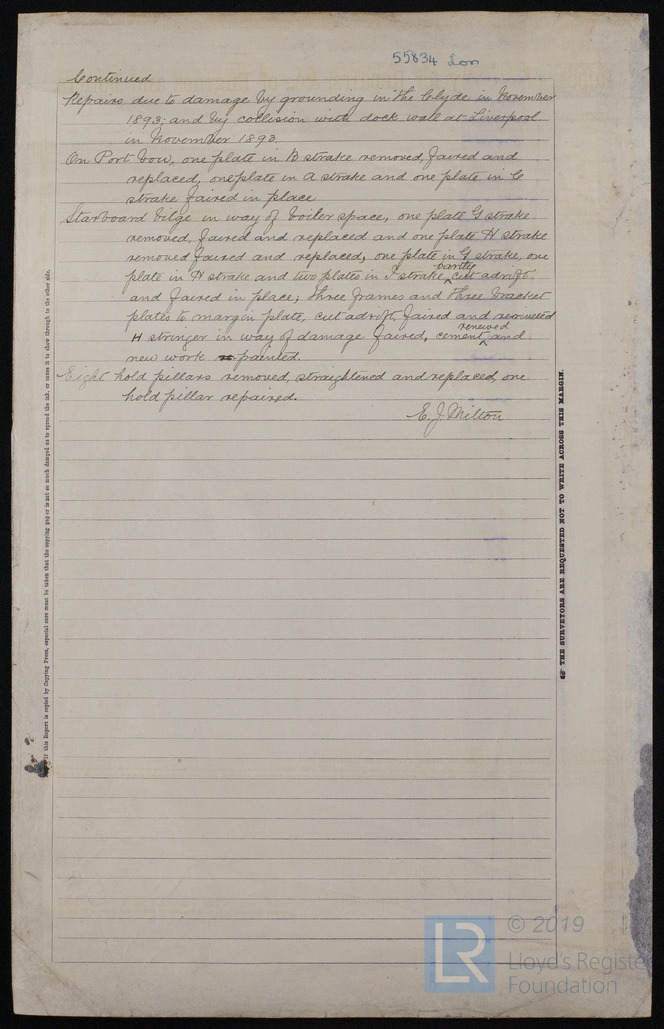 55834 Lon
Continued
Repairs due to damage by grounding in the Clyde in November
1893; and by collision with dock wall at Liverpool
in November 1893.
On Port bow, one plate in B strake removed, faired and
replaced, one plate in A strake and one plate in C
strake faired in place
Starboard bilge in way of boiler space, one plate G strake
removed, faired and replaced and one plate H strake
removed faired and replaced, one plate in G strake, one
plate in H strake and two plates in J strake, partly cut adrift
and faired in place; three frames and three bracket
plates to margin plate, cut adrift, faired and rerivetted
H stringer in way of damage faired, cement renewed and
new work painted.
Eight hold pillars removed, straightened and replaced, one
hold pillar repaired.
E. J. Milton
If this Report is copied by Copying Press, especial care must be taken that the copying pag or is not so much damped as to spread the ink, or cause it to show through to the other side.
THE SURVEYORS ARE REQUESTED NOT TO WRITE ACROSS THIS MARGIN.
LR
© 2019
Lloyd's Register
Foundation